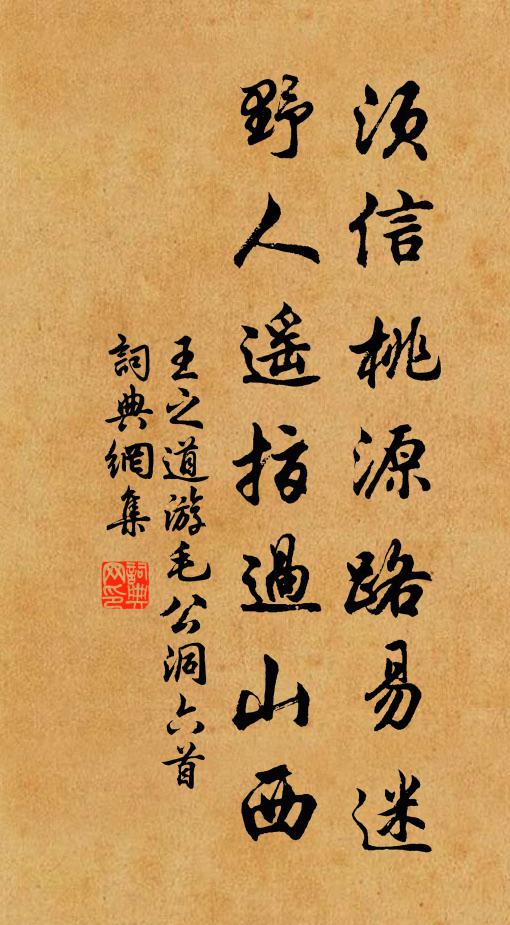 須信桃源路易迷
野人遥指過山西
王之道游毛公洞六首
詞典網集
詞典網印